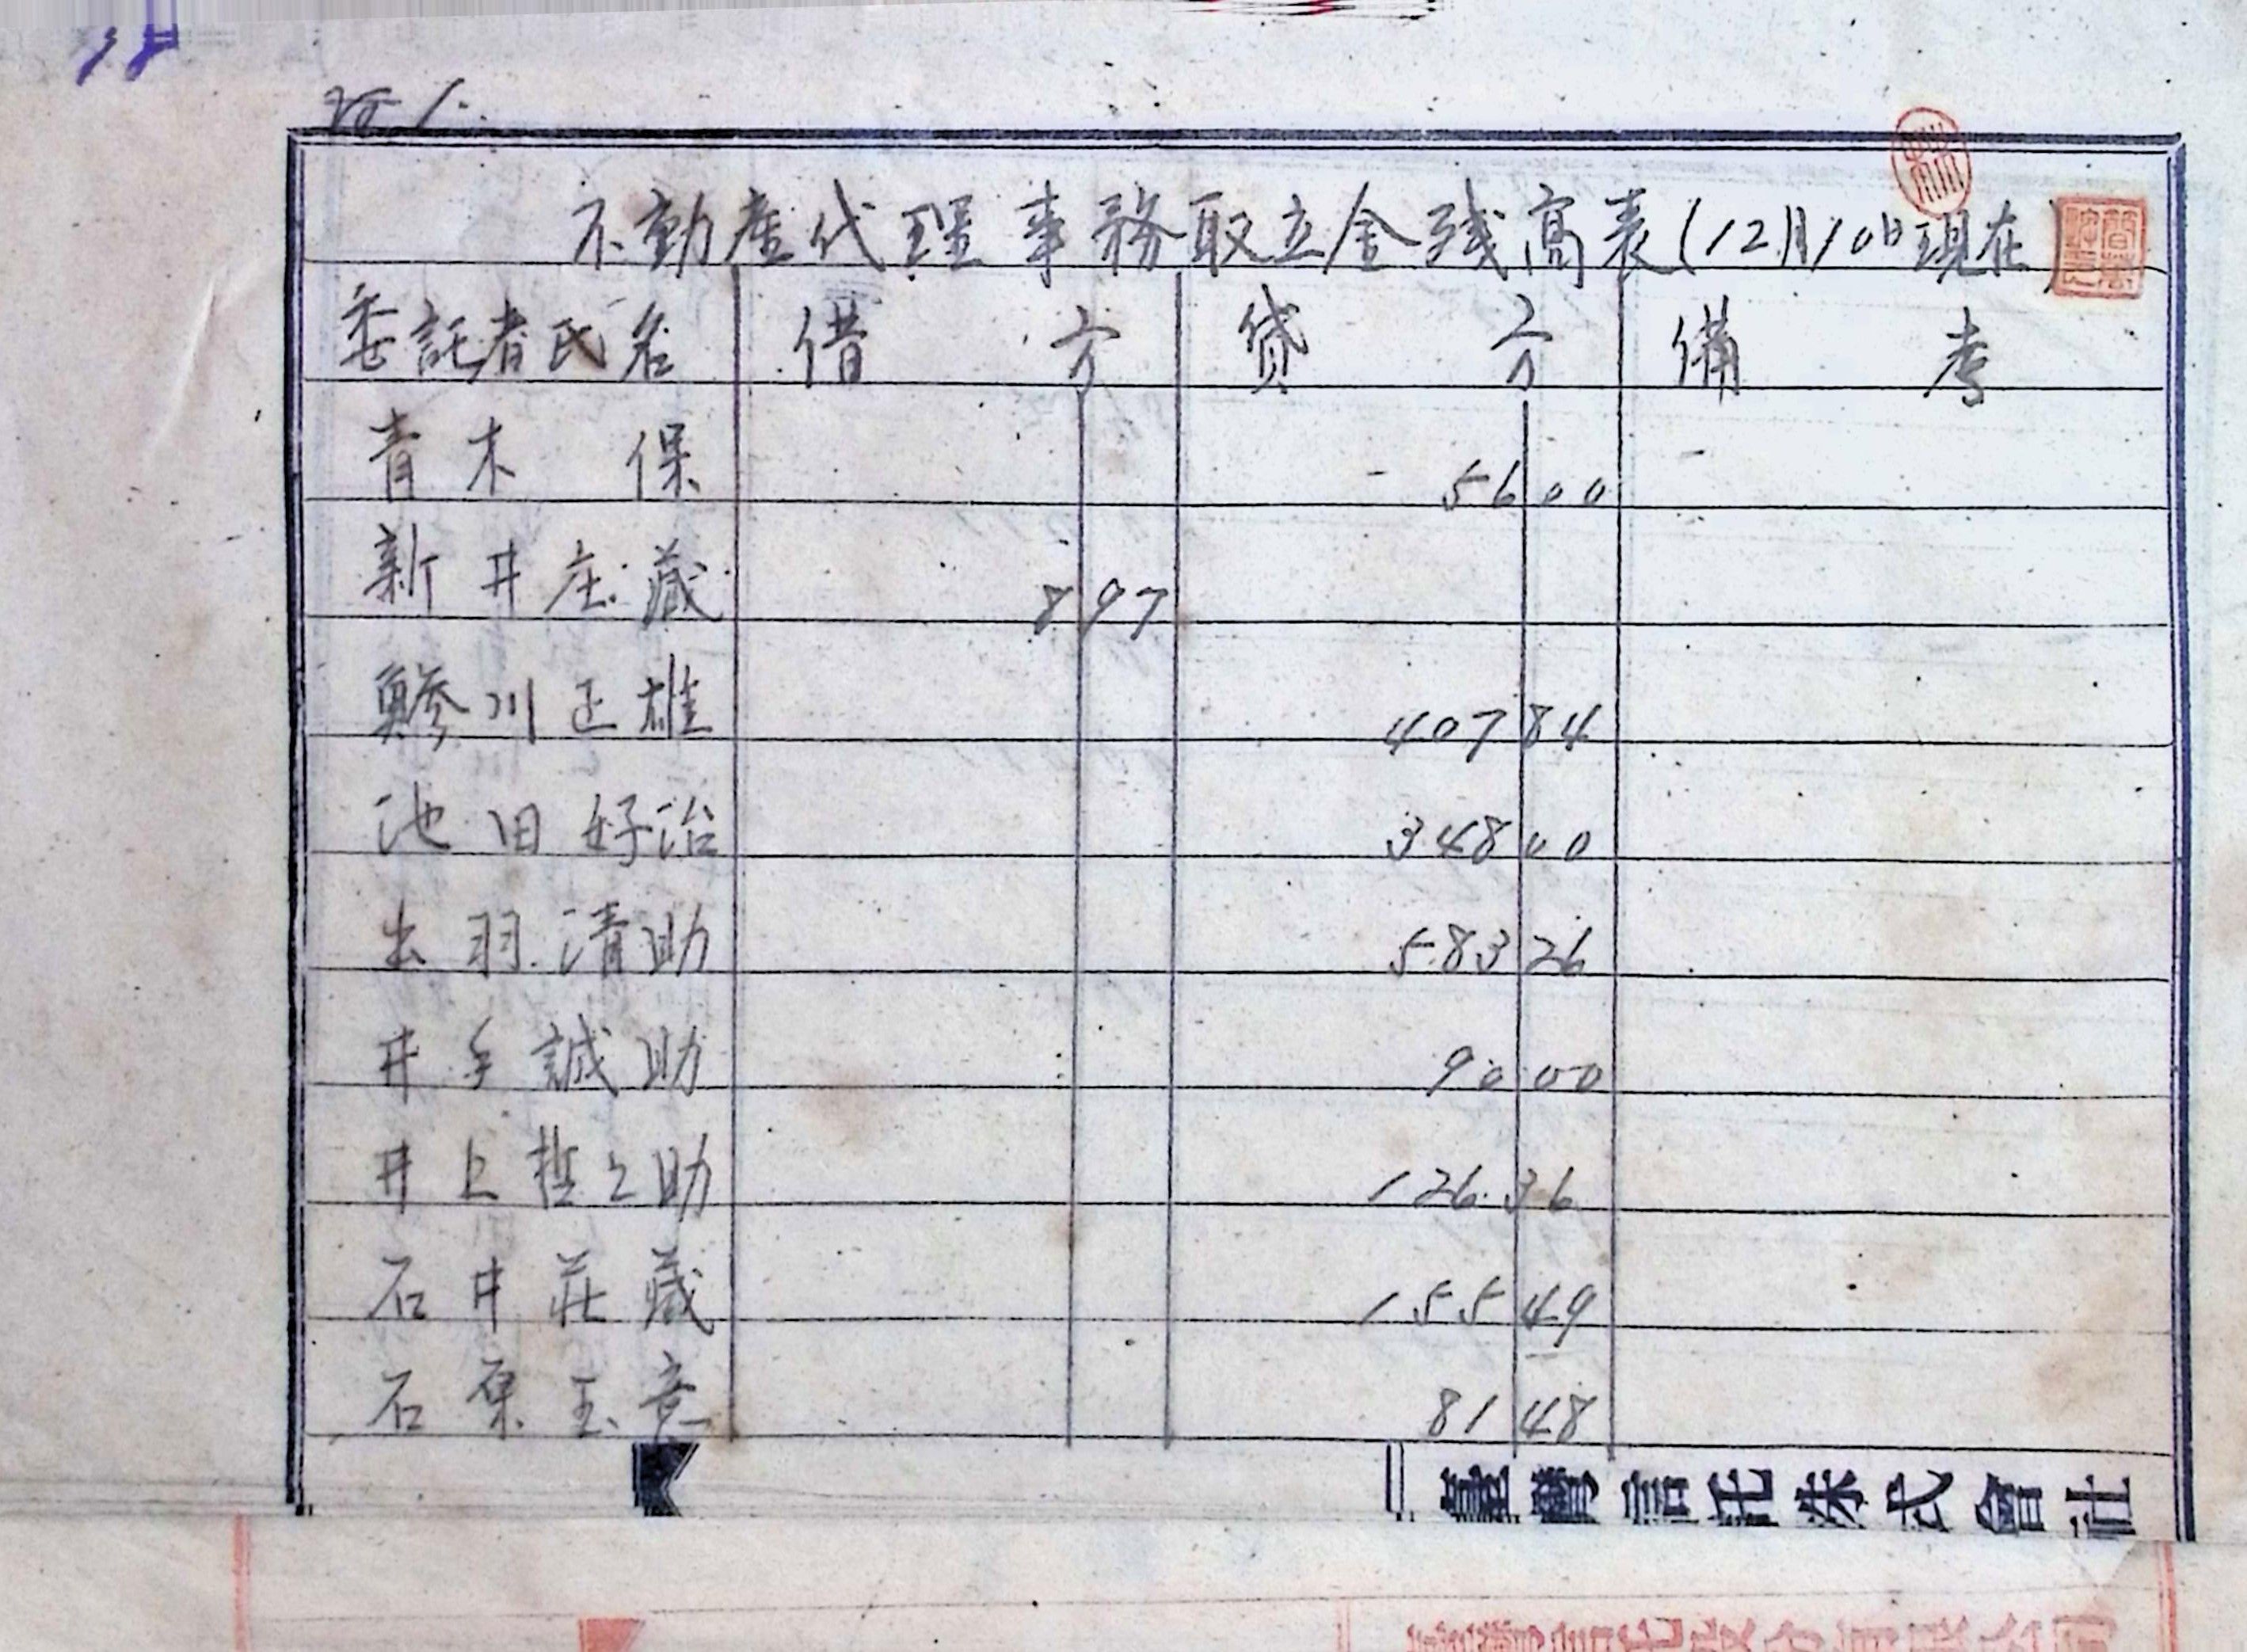 18
不動産代理事務取立金残高表(12月10日現在)
委託者氏名 借方 貸方 備考
青木 保 56 00
新井庄藏 8 97
鯵川正雄 407 84
池田好治 348 00
出羽清助 583 26
井手誠助 90 00
井上哲之助 126 36
石井莊藏 155 49
石原玉意 81 48
臺灣信託株式會社